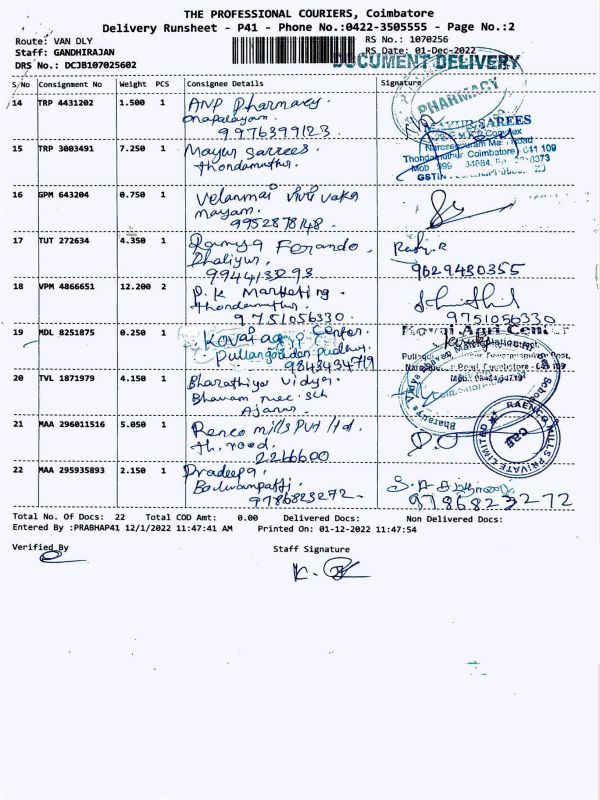 THE PROFESSIONAL COURIERS, Coimbatore
Delivery Runsheet - P41 - Phone No.:0422-3505555 - Page No.:2
Route: VAN DLY
RS No.: 1070256
Staff: GANDHIRAJAN
RS Date: 01-Dec-2022
DRS No.: DCJB107025602
DOCUMENT DELIVERY
S/No Consignment No Weight PCS Consignee Details Signature
14 TRP 4431202 1.500 1 ANP Pharmacy
PHARMACY
9976399123
15 TRP 3003491 7.250 1 Mayur Sarees
thondamuthur.
SAREES
Thondamuthur Coimbatore 641 109
GSTIN
16 GPM 643204 0.750 1 Velanmai
9952878148
17 TUT 272634 4.350 1 Ramya Ferando
Dhaliyur.
9629430355
18 VPM 4866651 12.200 2 P.K Marketing
thondamuthur.
9751056330
9751056330
19 MDL 8251875 0.250 1 Kovai agro Center.
Kovai Agri Cent
9843434719
20 TVL 1871979 4.150 1 Bharathiya Vidya
Bhavam mec. sch
Ajanur
21 MAA 296011516 5.050 1 Renco mills Pvt ltd.
th. road.
2266600
RAENCO MILLS PRIVATE LIMITED
22 MAA 295935893 2.150 1 Pradeepa
9786823272
9786823272
Total No. Of Docs: 22 Total COD Amt: 0.00 Delivered Docs: Non Delivered Docs:
Entered By :PRABHAP41 12/1/2022 11:47:41 AM Printed On: 01-12-2022 11:47:54
Verified By
Staff Signature